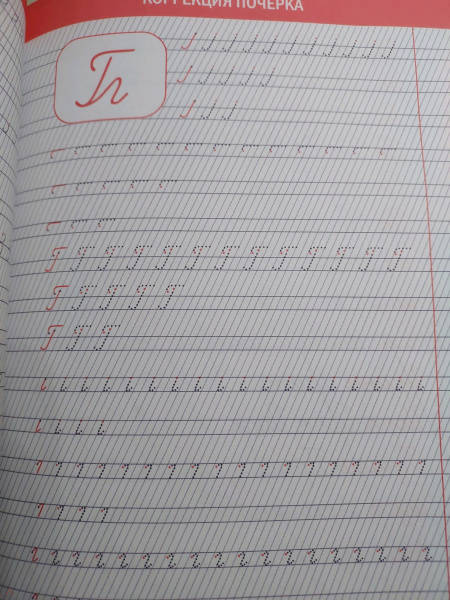 КОРРЕКЦИЯ ПОЧЕРКА
Гг
Г Г Г Г Г Г Г Г Г Г Г Г Г
Г Г Г Г Г
Г Г Г
г г г г г г г г г г г г г г г г г г